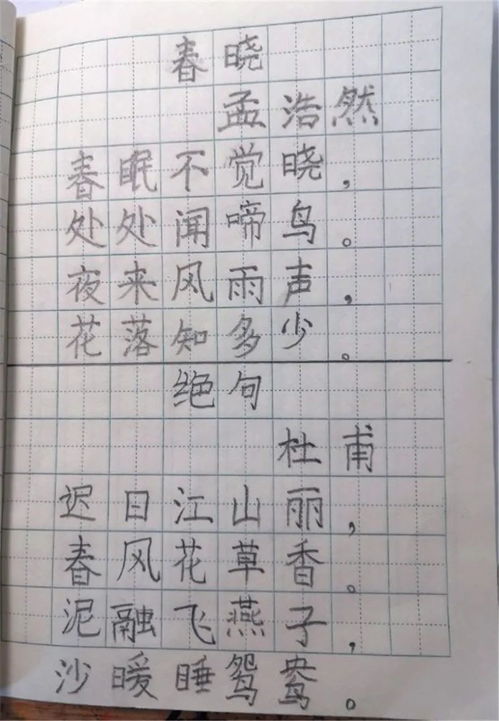 春晓
孟浩然
春眠不觉晓，
处处闻啼鸟。
夜来风雨声，
花落知多少。
绝句
杜甫
迟日江山丽，
春风花草香。
泥融飞燕子，
沙暖睡鸳鸯。